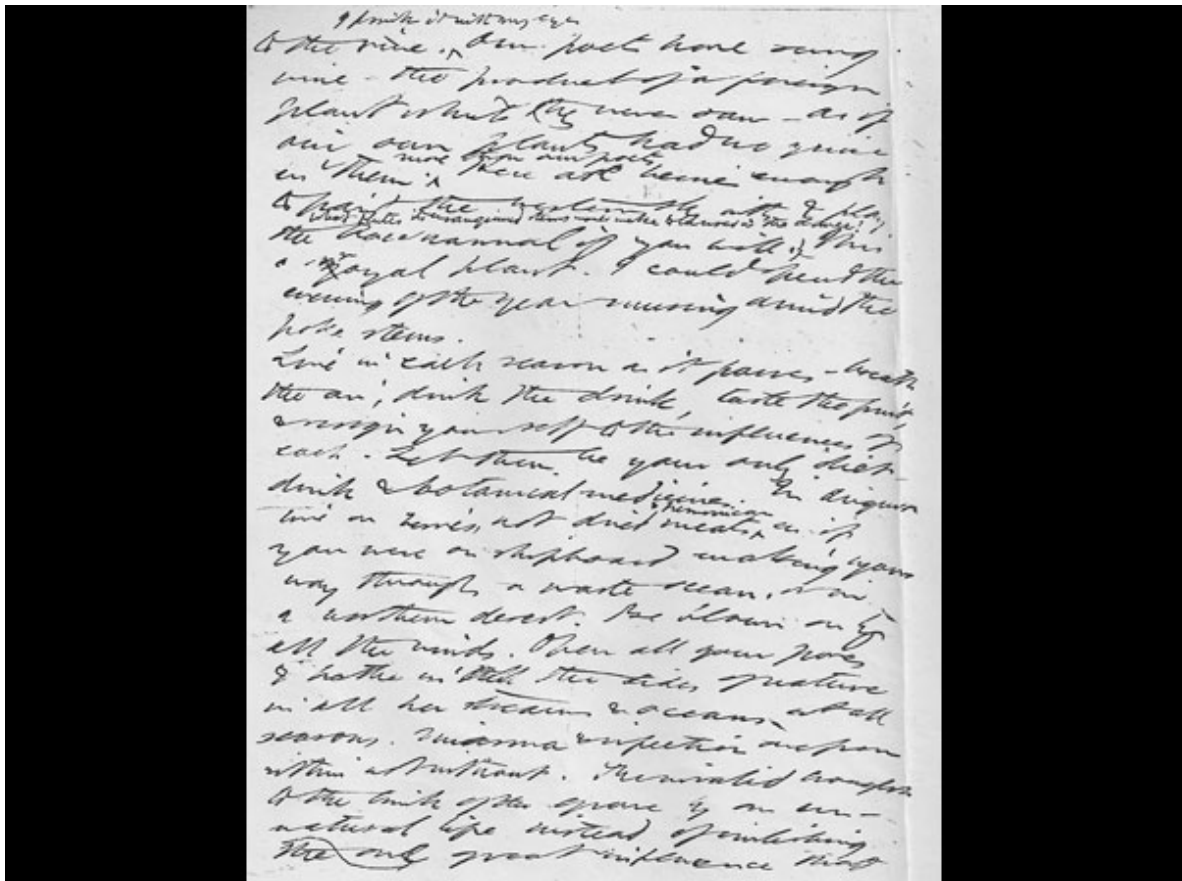 I drink it with my eyes
to the wine. Our poets have sung
wine – the product of a foreign
plant which they never saw – as if
our own plants had no juice
in them more than our poets
Here are berries enough
to paint the western sky with & play
What flutes its ensanguined stems would make to be used in the dance!
the Bacchanal if you will. This
a royal plant. I could spend the
evening of the year musing amid the
poke stems.
Live in each season as it passes – breathe
the air, drink the drink, taste the fruit,
& resign yourself to the influences of
each. Let them be your only diet-
drink & botanical medicines. In August
& Pemmican
live on berries, not dried meats as if
you were on shipboard making your
way through a waste ocean, or in
a northern desert. Be blown on by
all the winds. Open all your pores
& bathe in all the tides of nature
in all her streams & oceans at all
seasons. Miasma & infection are from
within not without. The invalid brought
to the brink of the grave by an un-
natural life instead of imbibing
the great influence that